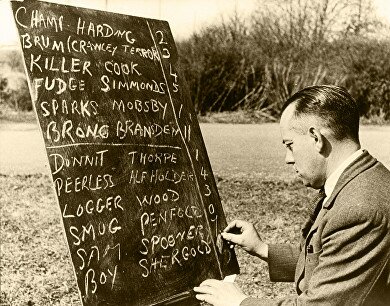 CHAMP HARDING 2
BRUM (CRAWLEY TERROR) 3
KILLER COOK
FUDGE SIMMONDS 4
SPARKS MOBSBY 5
BRONG BRANSDEN 11
DONNIT THORPE 1
PEERLESS ALF HOLDER 4
LOGGER WOOD 3
SMUG PENFOLD 0
SAM SPOONER
BOY SHERGOLD